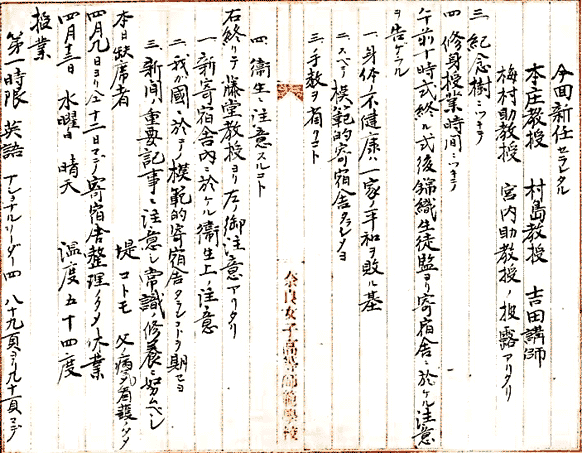 今回新任セラレタル
本庄教授 村島教授 吉田講師
梅村助教授 宮内助教授ノ披露アリタリ
三、紀念樹ニツキテ
四、修身授業時間ニツキテ
午前十時式終ル式後錦織生徒監ヨリ寄宿舎ニ於ケル注意
ヲ告ゲラル
一、身体ノ不健康ハ一家ノ平和ヲ敗ル基
二、スベテ模範的寄宿舎タラシメヨ
三、手数ヲ省クコト
奈良女子高等師範學校
四、衛生ニ注意スルコト
右終リテ藤堂教授ヨリ左ノ御注意アリタリ
一、新寄宿舎内ニ於ケル衛生上ノ注意
二、我ガ國ニ於ケル模範的寄宿舎タランコトヲ期セヨ
三、新聞ノ重要記事ニ注意シ常識修養ニ努ムベシ
本日缺席者 堤コトモ 父病気看護ノタメ
四月九日ヨリ仝十二日マデ寄宿舎整理ノタメ休業
四月十三日 水曜日 晴天 温度五十四度
授業
第一時限 英語 ナショナルリーダー四 八十九頁ヨリ九十一頁マデ